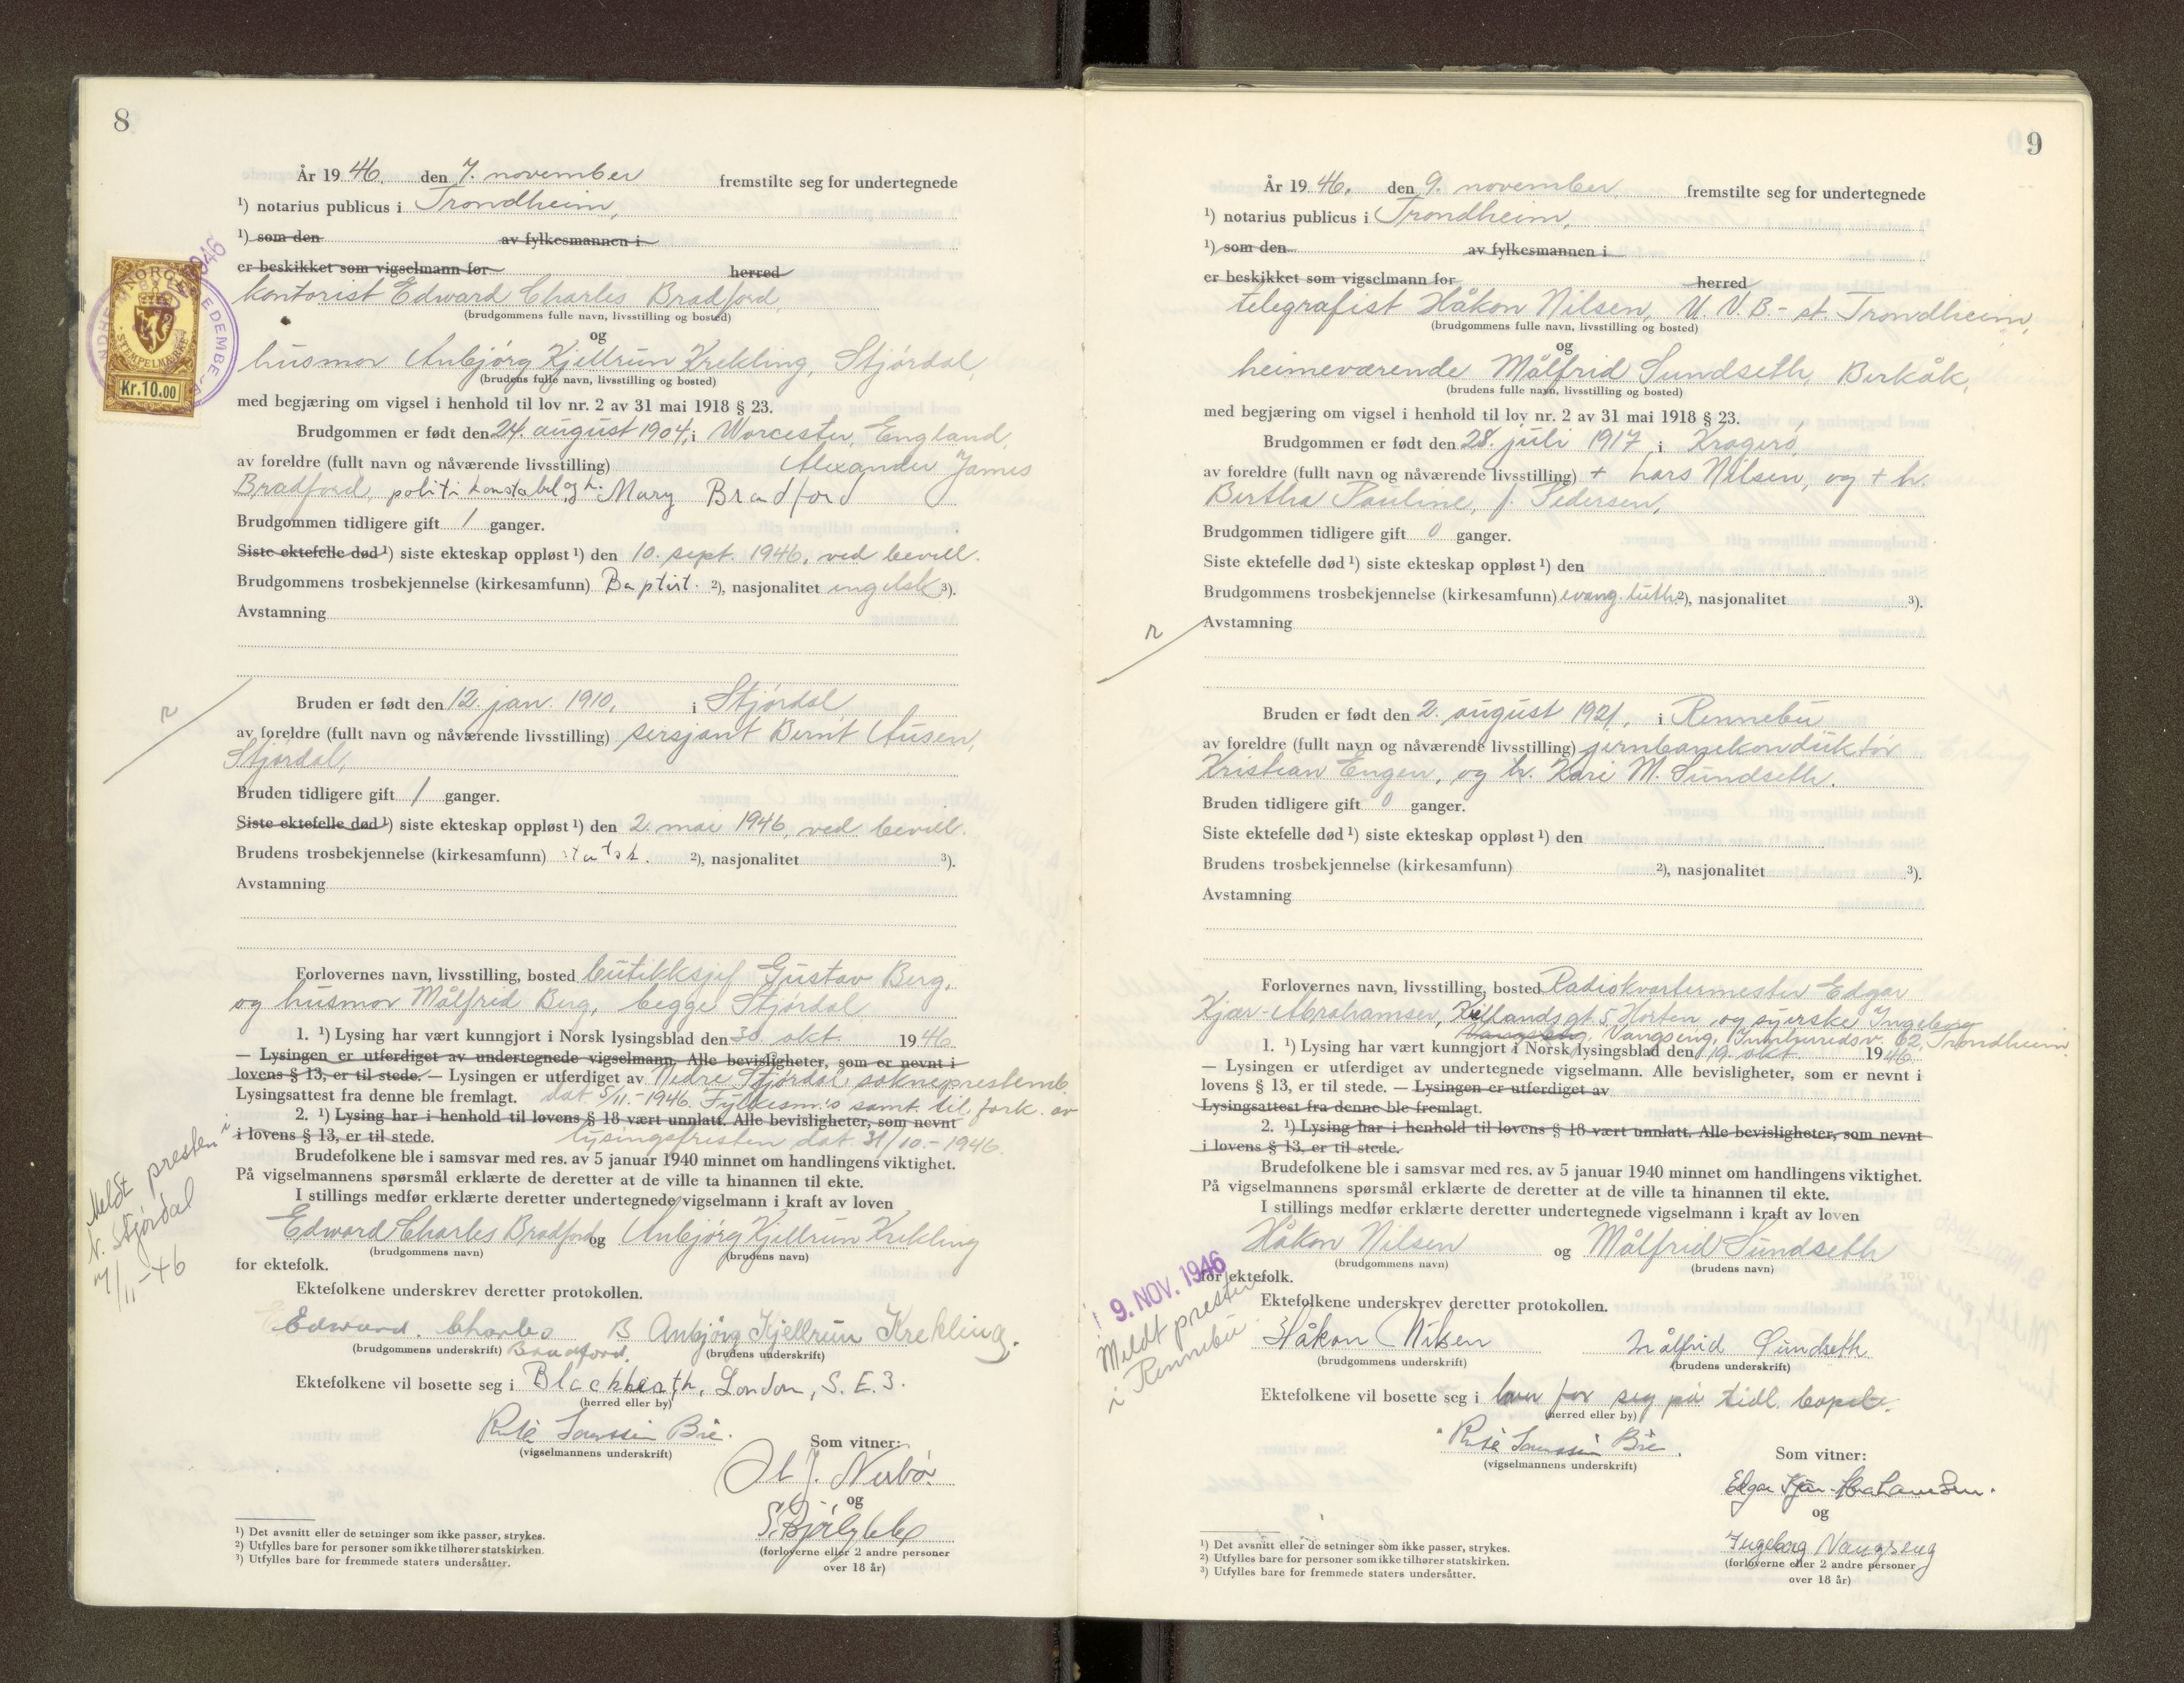 8
År 19 46. den 7. november fremstilte seg for undertegnede
¹) notarius publicus i Trondheim,
¹) som den av fylkesmannen i
er beskikket som vigselmann for herred
kontorist Edward Charles Bradford,
(brudgommens fulle navn, livsstilling og bosted)
og
husmor Anbjørg Kjellrun Krekling, Stjørdal,
(brudens fulle navn, livsstilling og bosted)
med begjæring om vigsel i henhold til lov nr. 2 av 31 mai 1918 § 23.
Brudgommen er født den 24. august 1904, i Worcester, England,
av foreldre (fullt navn og nåværende livsstilling) Alexander James
Bradford, politikonstabel, og h. Mary Bradford
Brudgommen tidligere gift 1 ganger.
Siste ektefelle død ¹) siste ekteskap oppløst ¹) den 10. sept. 1946, ved bevill.
Brudgommens trosbekjennelse (kirkesamfunn) Baptist. ²), nasjonalitet engelsk ³).
Avstamning
Bruden er født den 12. jan. 1910, i Stjørdal,
av foreldre (fullt navn og nåværende livsstilling) sersjant Bernt Ausen,
Stjørdal,
Bruden tidligere gift 1 ganger.
Siste ektefelle død ¹) siste ekteskap oppløst ¹) den 2. mai 1946, ved bevill.
Brudens trosbekjennelse (kirkesamfunn) statsk. ²), nasjonalitet ³).
Avstamning
Forlovernes navn, livsstilling, bosted butikksjef Gustav Berg,
og husmor Målfrid Berg, begge Stjørdal
1. ¹) Lysing har vært kunngjort i Norsk lysingsblad den 30. okt. 19 46
— Lysingen er utferdiget av undertegnede vigselmann. Alle bevisligheter, som er nevnt i
lovens § 13, er til stede. — Lysingen er utferdiget av Nedre Stjørdal sokneprestemb.
Lysingsattest fra denne ble fremlagt. dat. 5/11.-1946. Fylkesm.'s samt. til fork. av
2. ¹) Lysing har i henhold til lovens § 18 vært unnlatt. Alle bevisligheter, som nevnt
i lovens § 13, er til stede. lysingsfristen dat. 31/10.-1946.
Brudefolkene ble i samsvar med res. av 5 januar 1940 minnet om handlingens viktighet.
På vigselmannens spørsmål erklærte de deretter at de ville ta hinannen til ekte.
I stillings medfør erklærte deretter undertegnede vigselmann i kraft av loven
Edward Charles Bradford og Anbjørg Kjellrun Krekling
(brudgommens navn) (brudens navn)
for ektefolk.
Ektefolkene underskrev deretter protokollen.
Edward. Charles B Anbjørg Kjellrun Krekling.
(brudgommens underskrift) Bradford. (brudens underskrift)
Ektefolkene vil bosette seg i Blackheath, London, S.E.3.
(herred eller by)
(vigselmannens underskrift)
Som vitner:
og
(forloverne eller 2 andre personer
over 18 år)
¹) Det avsnitt eller de setninger som ikke passer, strykes.
²) Utfylles bare for personer som ikke tilhører statskirken.
³) Utfylles bare for fremmede staters undersåtter.
NORGE
STEMPELMERKE
Kr.10.00
Meldt presten i
N. Stjørdal
7/11-46
9
År 19 46, den 9. november fremstilte seg for undertegnede
¹) notarius publicus i Trondheim,
¹) som den av fylkesmannen i
er beskikket som vigselmann for herred
telegrafist Håkon Nilsen, U.V.B.-st. Trondheim,
(brudgommens fulle navn, livsstilling og bosted)
og
heimeværende Målfrid Sundseth, Berkåk,
(brudens fulle navn, livsstilling og bosted)
med begjæring om vigsel i henhold til lov nr. 2 av 31 mai 1918 § 23.
Brudgommen er født den 28. juli 1917 i Kragerø,
av foreldre (fullt navn og nåværende livsstilling) + Lars Nilsen, og + h.
Bertha Pauline, f. Pedersen,
Brudgommen tidligere gift 0 ganger.
Siste ektefelle død ¹) siste ekteskap oppløst ¹) den
Brudgommens trosbekjennelse (kirkesamfunn) evang. luth. ²), nasjonalitet ³).
Avstamning
Bruden er født den 2. august 1921, i Rennebu
av foreldre (fullt navn og nåværende livsstilling) jernbanekonduktør
Kristian Engen, og h. Kari M. Sundseth.
Bruden tidligere gift 0 ganger.
Siste ektefelle død ¹) siste ekteskap oppløst ¹) den
Brudens trosbekjennelse (kirkesamfunn) ²), nasjonalitet ³).
Avstamning
Forlovernes navn, livsstilling, bosted Radiokvartermester Edgar
Kjær-Abrahamsen, Killandsgt 5, Horten, og syerske Ingeborg
Vangseng, Innherredsv. 62, Trondheim.
1. ¹) Lysing har vært kunngjort i Norsk lysingsblad den 19. okt. 19 46
— Lysingen er utferdiget av undertegnede vigselmann. Alle bevisligheter, som er nevnt i
lovens § 13, er til stede. — Lysingen er utferdiget av
Lysingsattest fra denne ble fremlagt.
2. ¹) Lysing har i henhold til lovens § 18 vært unnlatt. Alle bevisligheter, som nevnt
i lovens § 13, er til stede.
Brudefolkene ble i samsvar med res. av 5 januar 1940 minnet om handlingens viktighet.
På vigselmannens spørsmål erklærte de deretter at de ville ta hinannen til ekte.
I stillings medfør erklærte deretter undertegnede vigselmann i kraft av loven
Håkon Nilsen og Målfrid Sundseth
(brudgommens navn) (brudens navn)
for ektefolk.
Ektefolkene underskrev deretter protokollen.
Håkon Nilsen Målfrid Sundseth
(brudgommens underskrift) (brudens underskrift)
Ektefolkene vil bosette seg i hver for seg på tidl. bopel.
(herred eller by)
(vigselmannens underskrift)
Som vitner:
Edgar Kjær-Abrahamsen.
og
Ingeborg Vangseng
(forloverne eller 2 andre personer
over 18 år)
¹) Det avsnitt eller de setninger som ikke passer, strykes.
²) Utfylles bare for personer som ikke tilhører statskirken.
³) Utfylles bare for fremmede staters undersåtter.
9. NOV. 1946
Meldt presten
i Rennebu